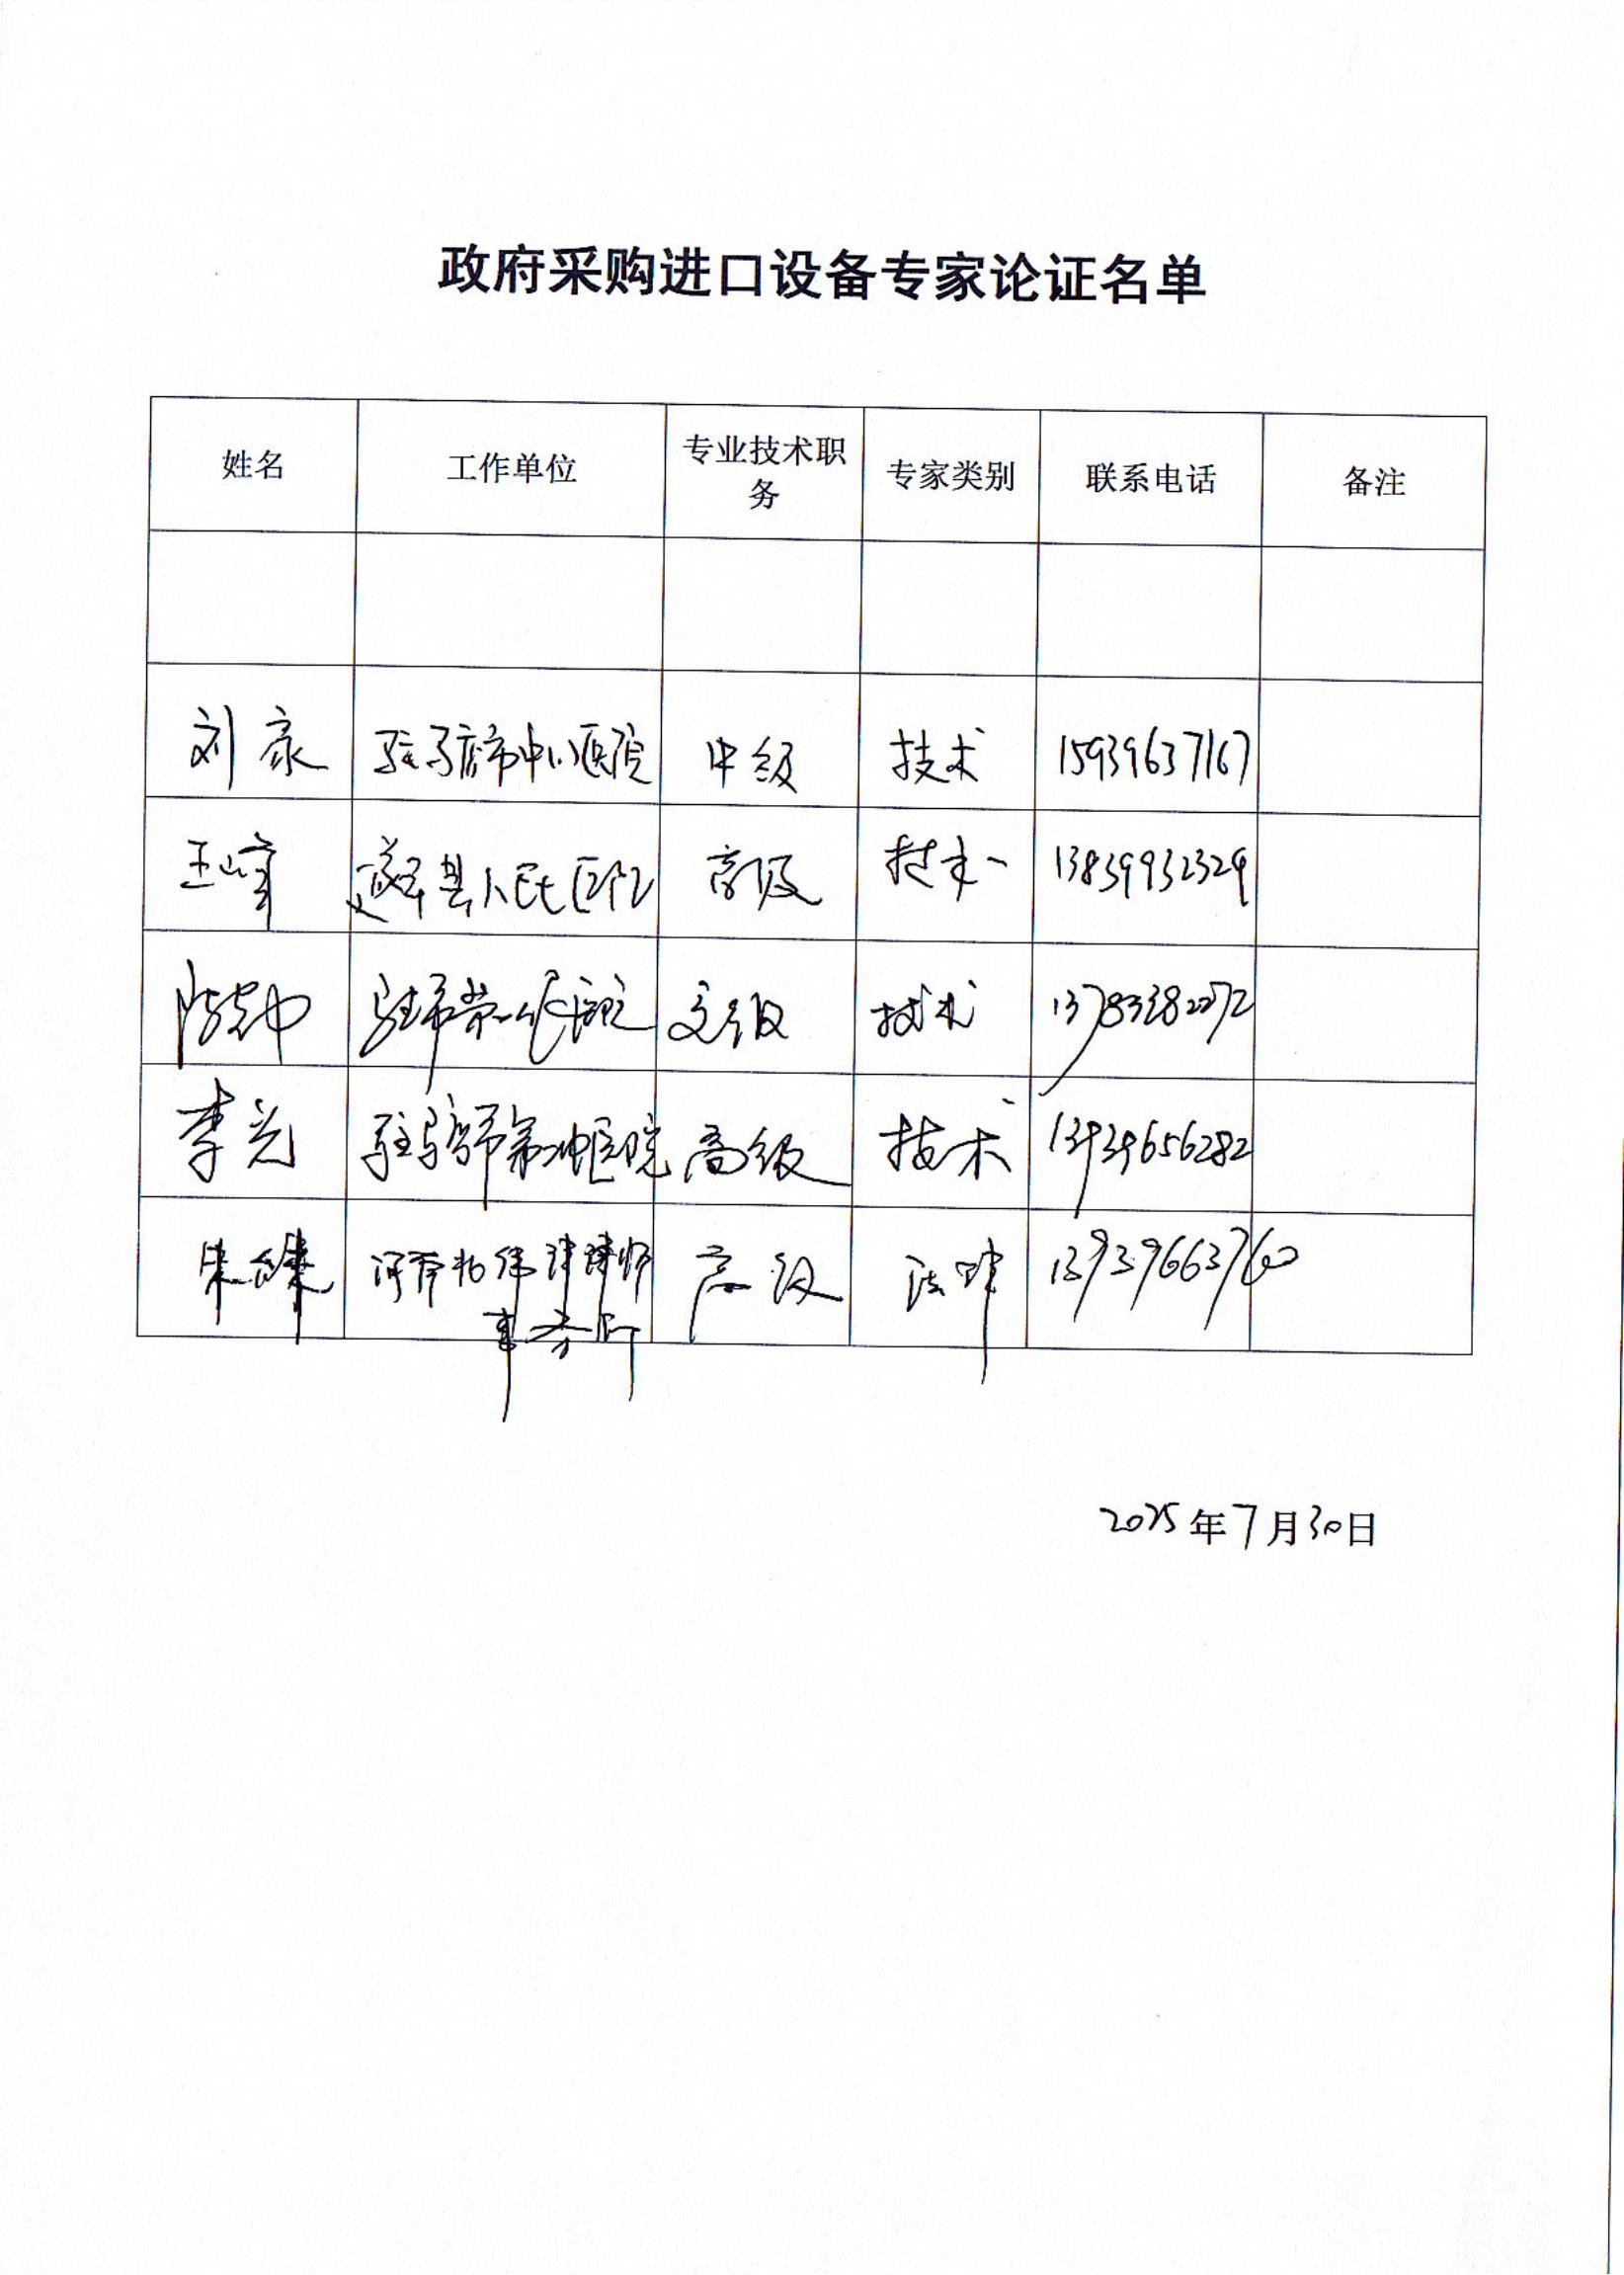 政府采购进口设备专家论证名单
姓名 工作单位 专业技术职务 专家类别 联系电话 备注
刘 驻马店市中心医院 中级 技术 15939637167
王峰 遂平县人民医院 高级 技术 13839932329
陈 驻市第一人民医院 高级 技术 13783382272
李 驻马店市第二中医院 高级 技术 13939656282
朱 河南 律师事务所 高级 法律 13939663760
2025年7月30日